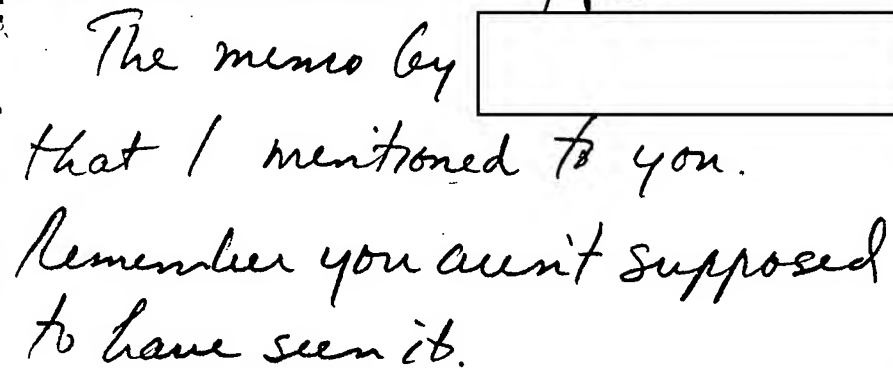 The memo by
that I mentioned to you.
Remember you aren't supposed
to have seen it.